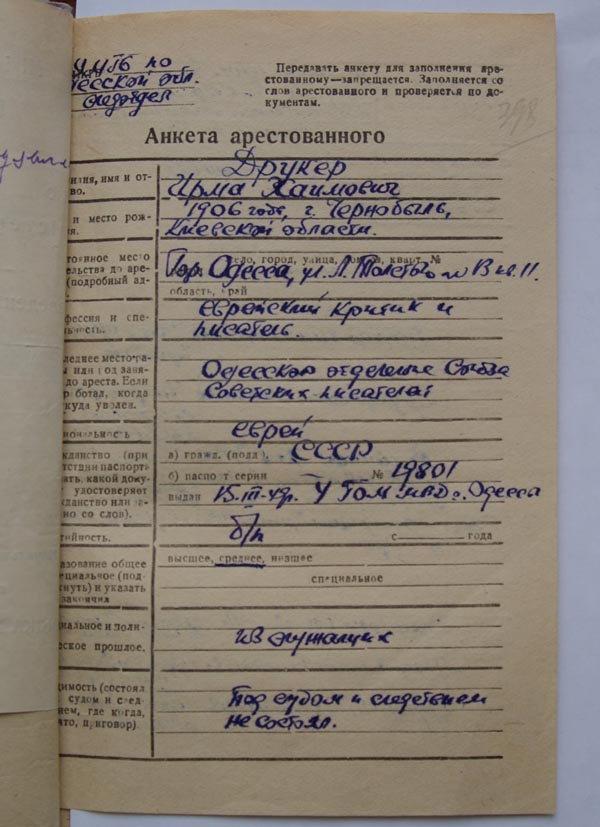 УМГБ по
Одесской обл.
следотдел
Передавать анкету для заполнения аре-
стованному—запрещается. Заполняется со
слов арестованного и проверяется по до-
кументам.
398
Анкета арестованного
илия, имя и от-
во.
Друкер
Ирма Хаимович
и место рож-
я.
1906 года, г. Чернобыль,
Киевской области.
стоянное место
ельства до аре-
(подробный ад-
село, город, улица, кварт. №
Гор. Одесса, ул. Л. Толстого 11.
область, край
фессия и спе-
льность.
еврейский критик и
писатель.
следнее место ра-
ы или год заня-
до ареста. Если
р ботал, когда
куда уволен.
Одесское отделение Союза
Советских писателей
иональность
еврей
жданство (при
тствии паспорт
ать, какой доку-
удостоверяет
жданство или за-
но со слов).
а) гражд. (подд.) СССР
б) паспо т серии — № 19801
выдан 15.III-49г. У ГОМ МВД г. Одесса
тийность.
б/п
с года
азование общее
пециальное (под-
кнуть) и указать
закончил
высшее, среднее, низшее
специальное
циальное и поли-
еское прошлое.
из служащих
димость (состоял
судом и след-
ием, где когда,
что, приговор)
Под судом и следствием
не состоял.